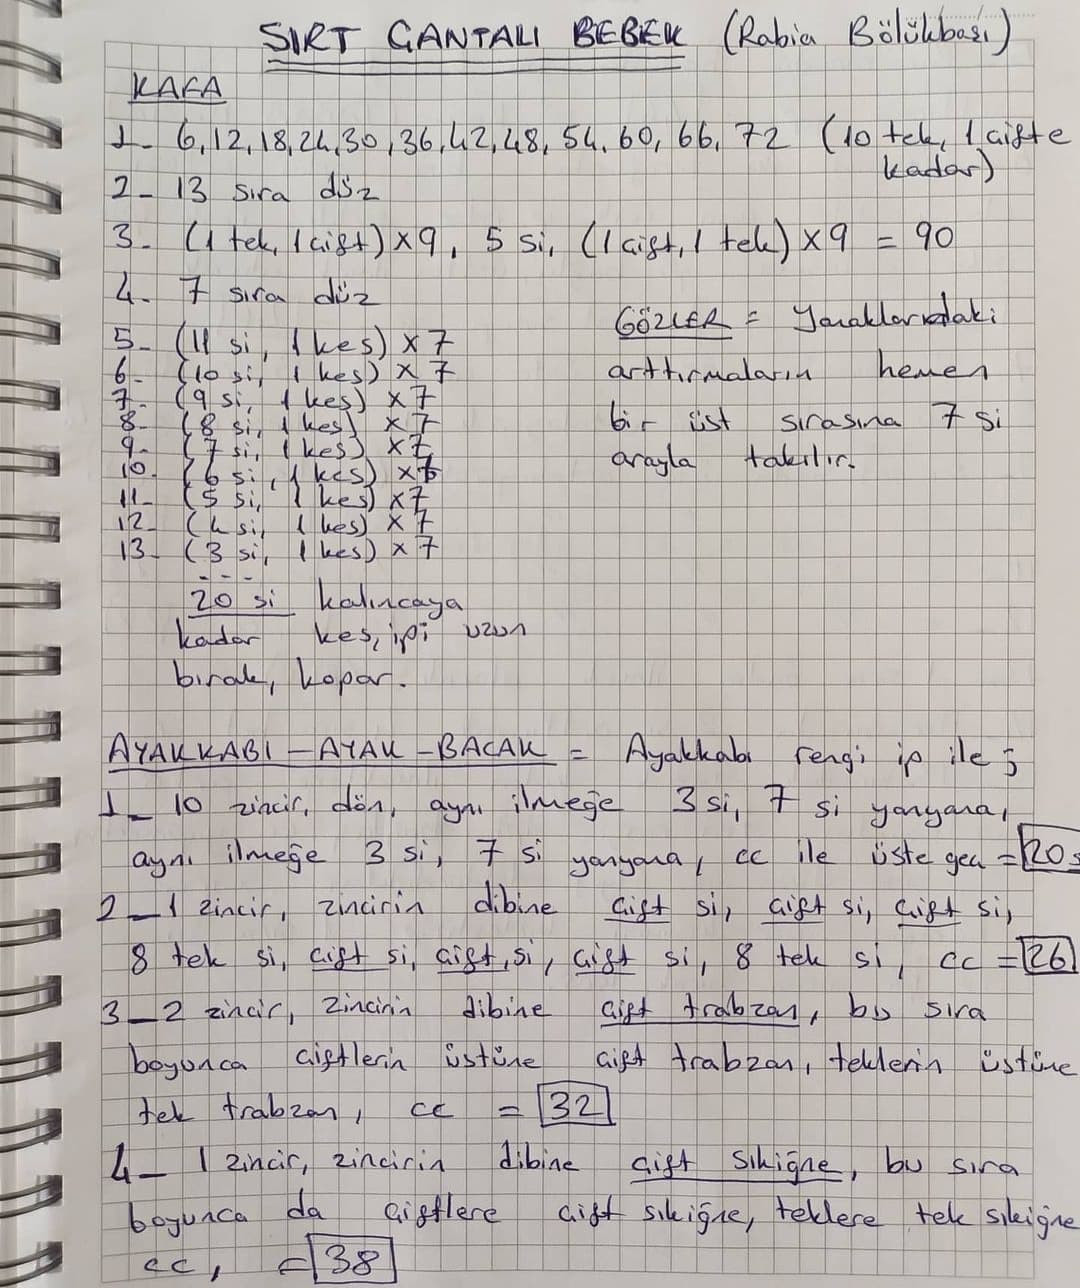 SIRT ÇANTALI BEBEK (Rabia Bölükbaşı)
KAFA
1- 6,12,18,24,30,36,42,48,54,60,66,72 (10 tek, 1 çifte
kadar)
2- 13 sıra düz
3- (1 tek, 1 çift) x9, 5 si, (1 çift, 1 tek) x9 = 90
4- 7 sıra düz
5- (11 si, 1 kes) x 7
6- (10 si, 1 kes) x 7
7- (9 si, 1 kes) x7
8- (8 si, 1 kes) x7
9- (7 si, 1 kes) x7
10- (6 si, 1 kes) x7
11- (5 si, 1 kes) x7
12- (4 si, 1 kes) x 7
13- (3 si, 1 kes) x 7
- - -
20 si kalıncaya
kadar kes, ipi uzun
bırak, kopar.
GÖZLER = Yanaklarındaki
arttırmaların hemen
bir üst sırasına 7 si
arayla takılır.
AYAKKABI - AYAK - BACAK = Ayakkabı rengi ip ile;
1- 10 zincir, dön, aynı ilmeğe 3 si, 7 si yanyana,
aynı ilmeğe 3 si, 7 si yanyana, cc ile üste geç = 20s
2- 1 zincir, zincirin dibine çift si, çift si, çift si,
8 tek si, çift si, çift, si, çift si, 8 tek si, cc = 26
3- 2 zincir, zincirin dibine çift trabzan, bu sıra
boyunca çiftlerin üstüne çift trabzan, teklerin üstüne
tek trabzan, cc = 32
4- 1 zincir, zincirin dibine çift sıkiğne, bu sıra
boyunca da çiftlere çift sıkiğne, teklere tek sıkiğne
cc, = 38